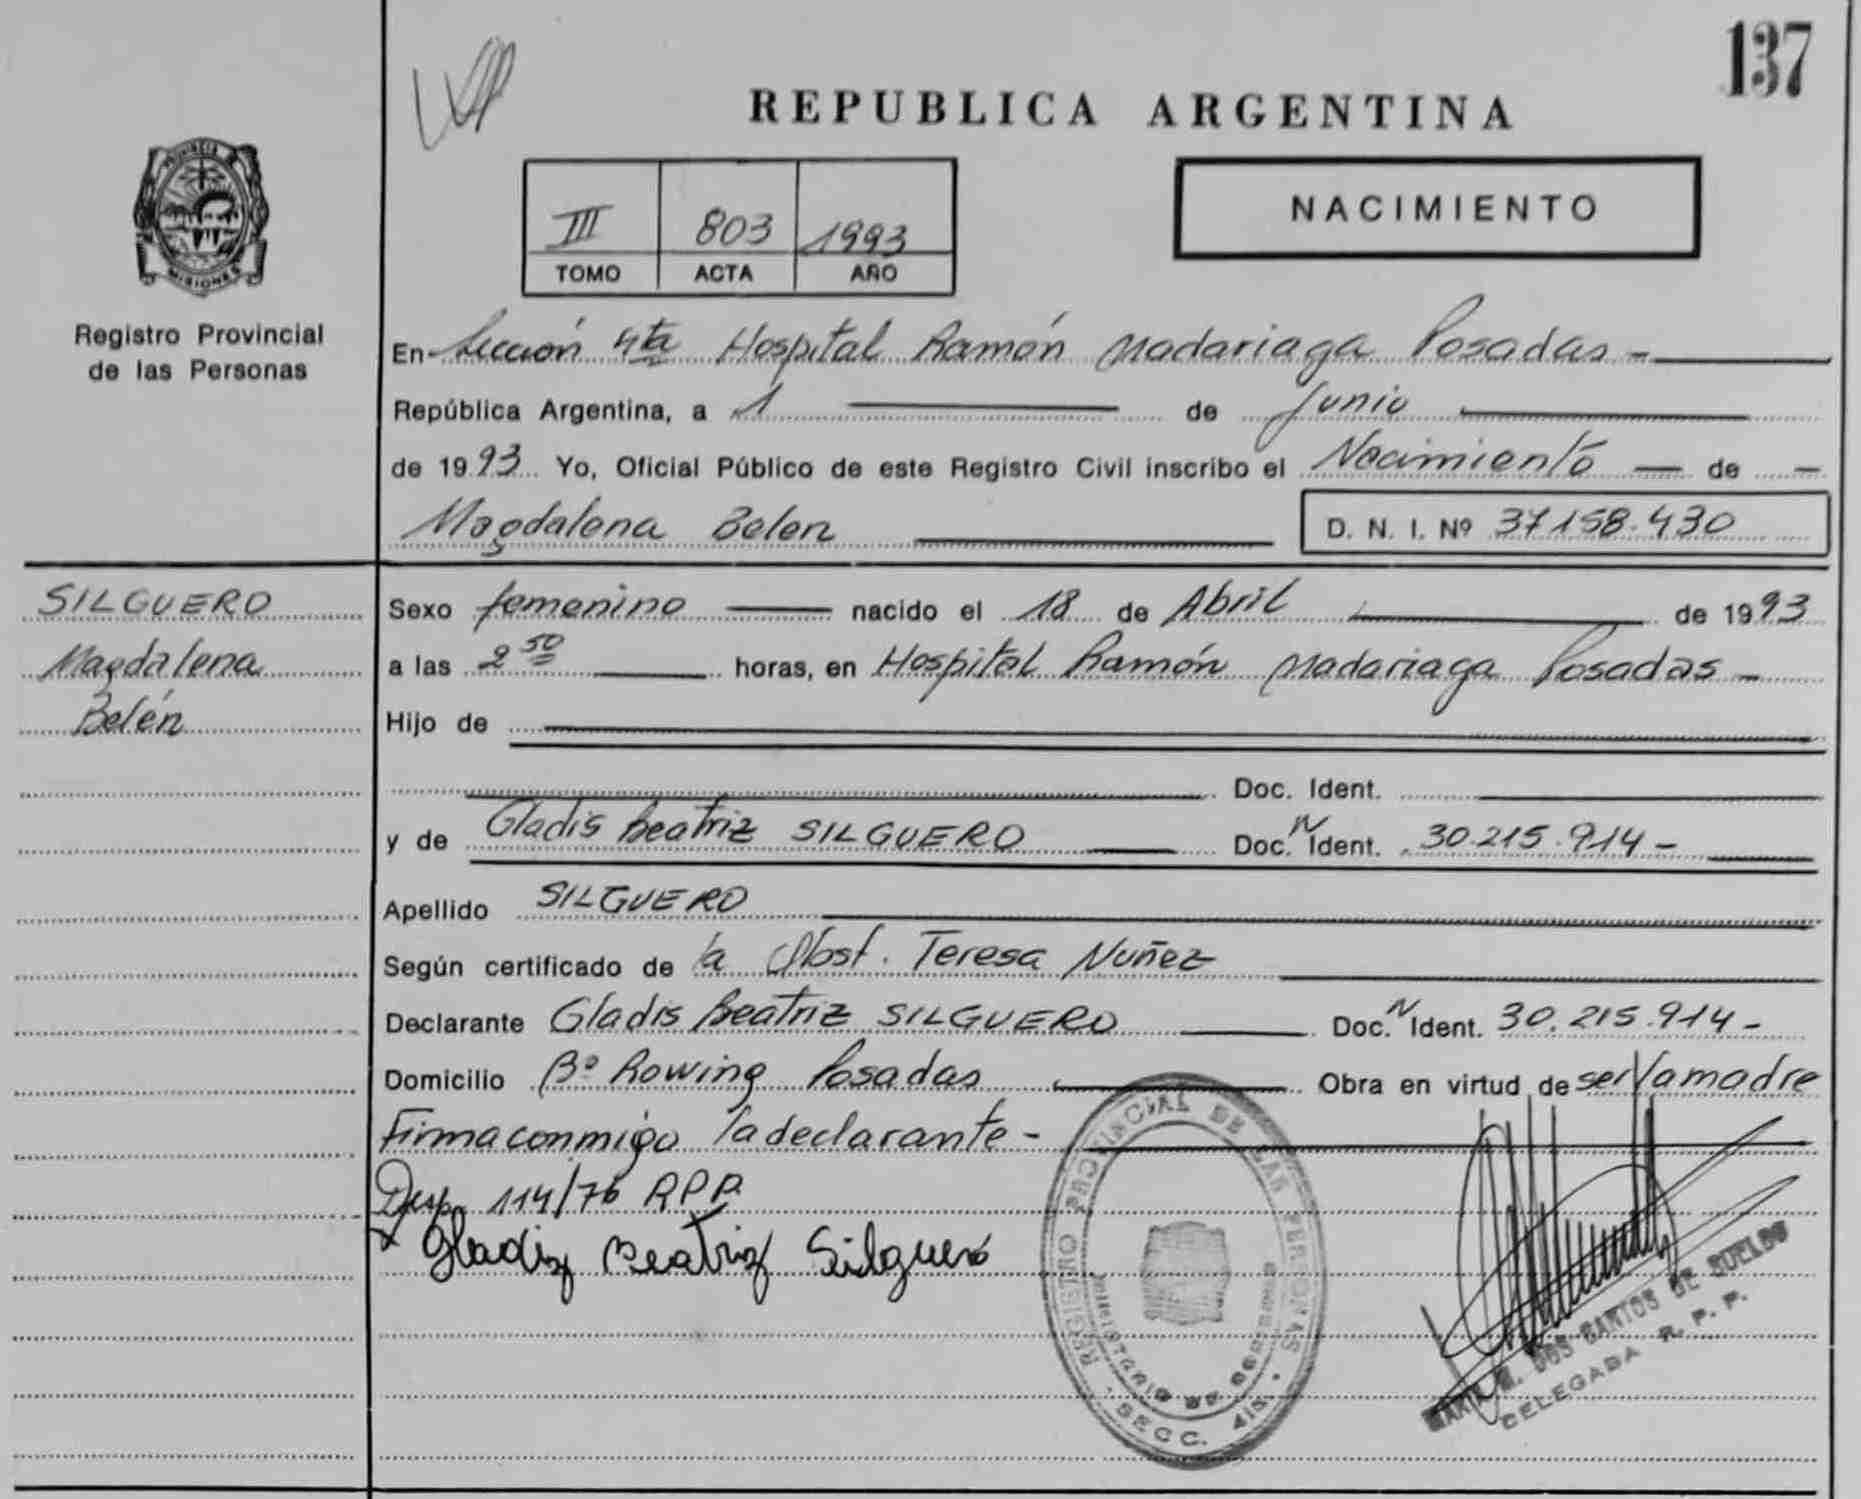 137
REPUBLICA ARGENTINA
PROVINCIA DE
MISIONES
Registro Provincial
de las Personas
III 803 1993
TOMO ACTA AÑO
NACIMIENTO
En Sección 4ta Hospital Ramón Madariaga Posadas -
República Argentina, a 1 de Junio
de 1993 Yo, Oficial Público de este Registro Civil inscribo el Nacimiento de
Magdalena Belen D. N. I. Nº 37158.430
SILGUERO
Magdalena
Belén
Sexo femenino nacido el 18 de Abril de 1993
a las 2 50 horas, en Hospital Ramón Madariaga Posadas -
Hijo de
Doc. Ident.
y de Gladis Beatriz SILGUERO Doc. N Ident. 30.215.914 -
Apellido SILGUERO
Según certificado de la Obst. Teresa Nuñez
Declarante Gladis Beatriz SILGUERO Doc. N Ident. 30.215.914 -
Domicilio Bº Rowing Posadas Obra en virtud de ser la madre
Firma conmigo la declarante -
Desp. 114/76 RPP.
x Gladiz Beatriz Silguero
REGISTRO PROVINCIAL DE LAS PERSONAS
MINISTERIO DE GOBIERNO
SECC. 4ta.
DOS SANTOS DE SUELDS
DELEGADA R. P. P.